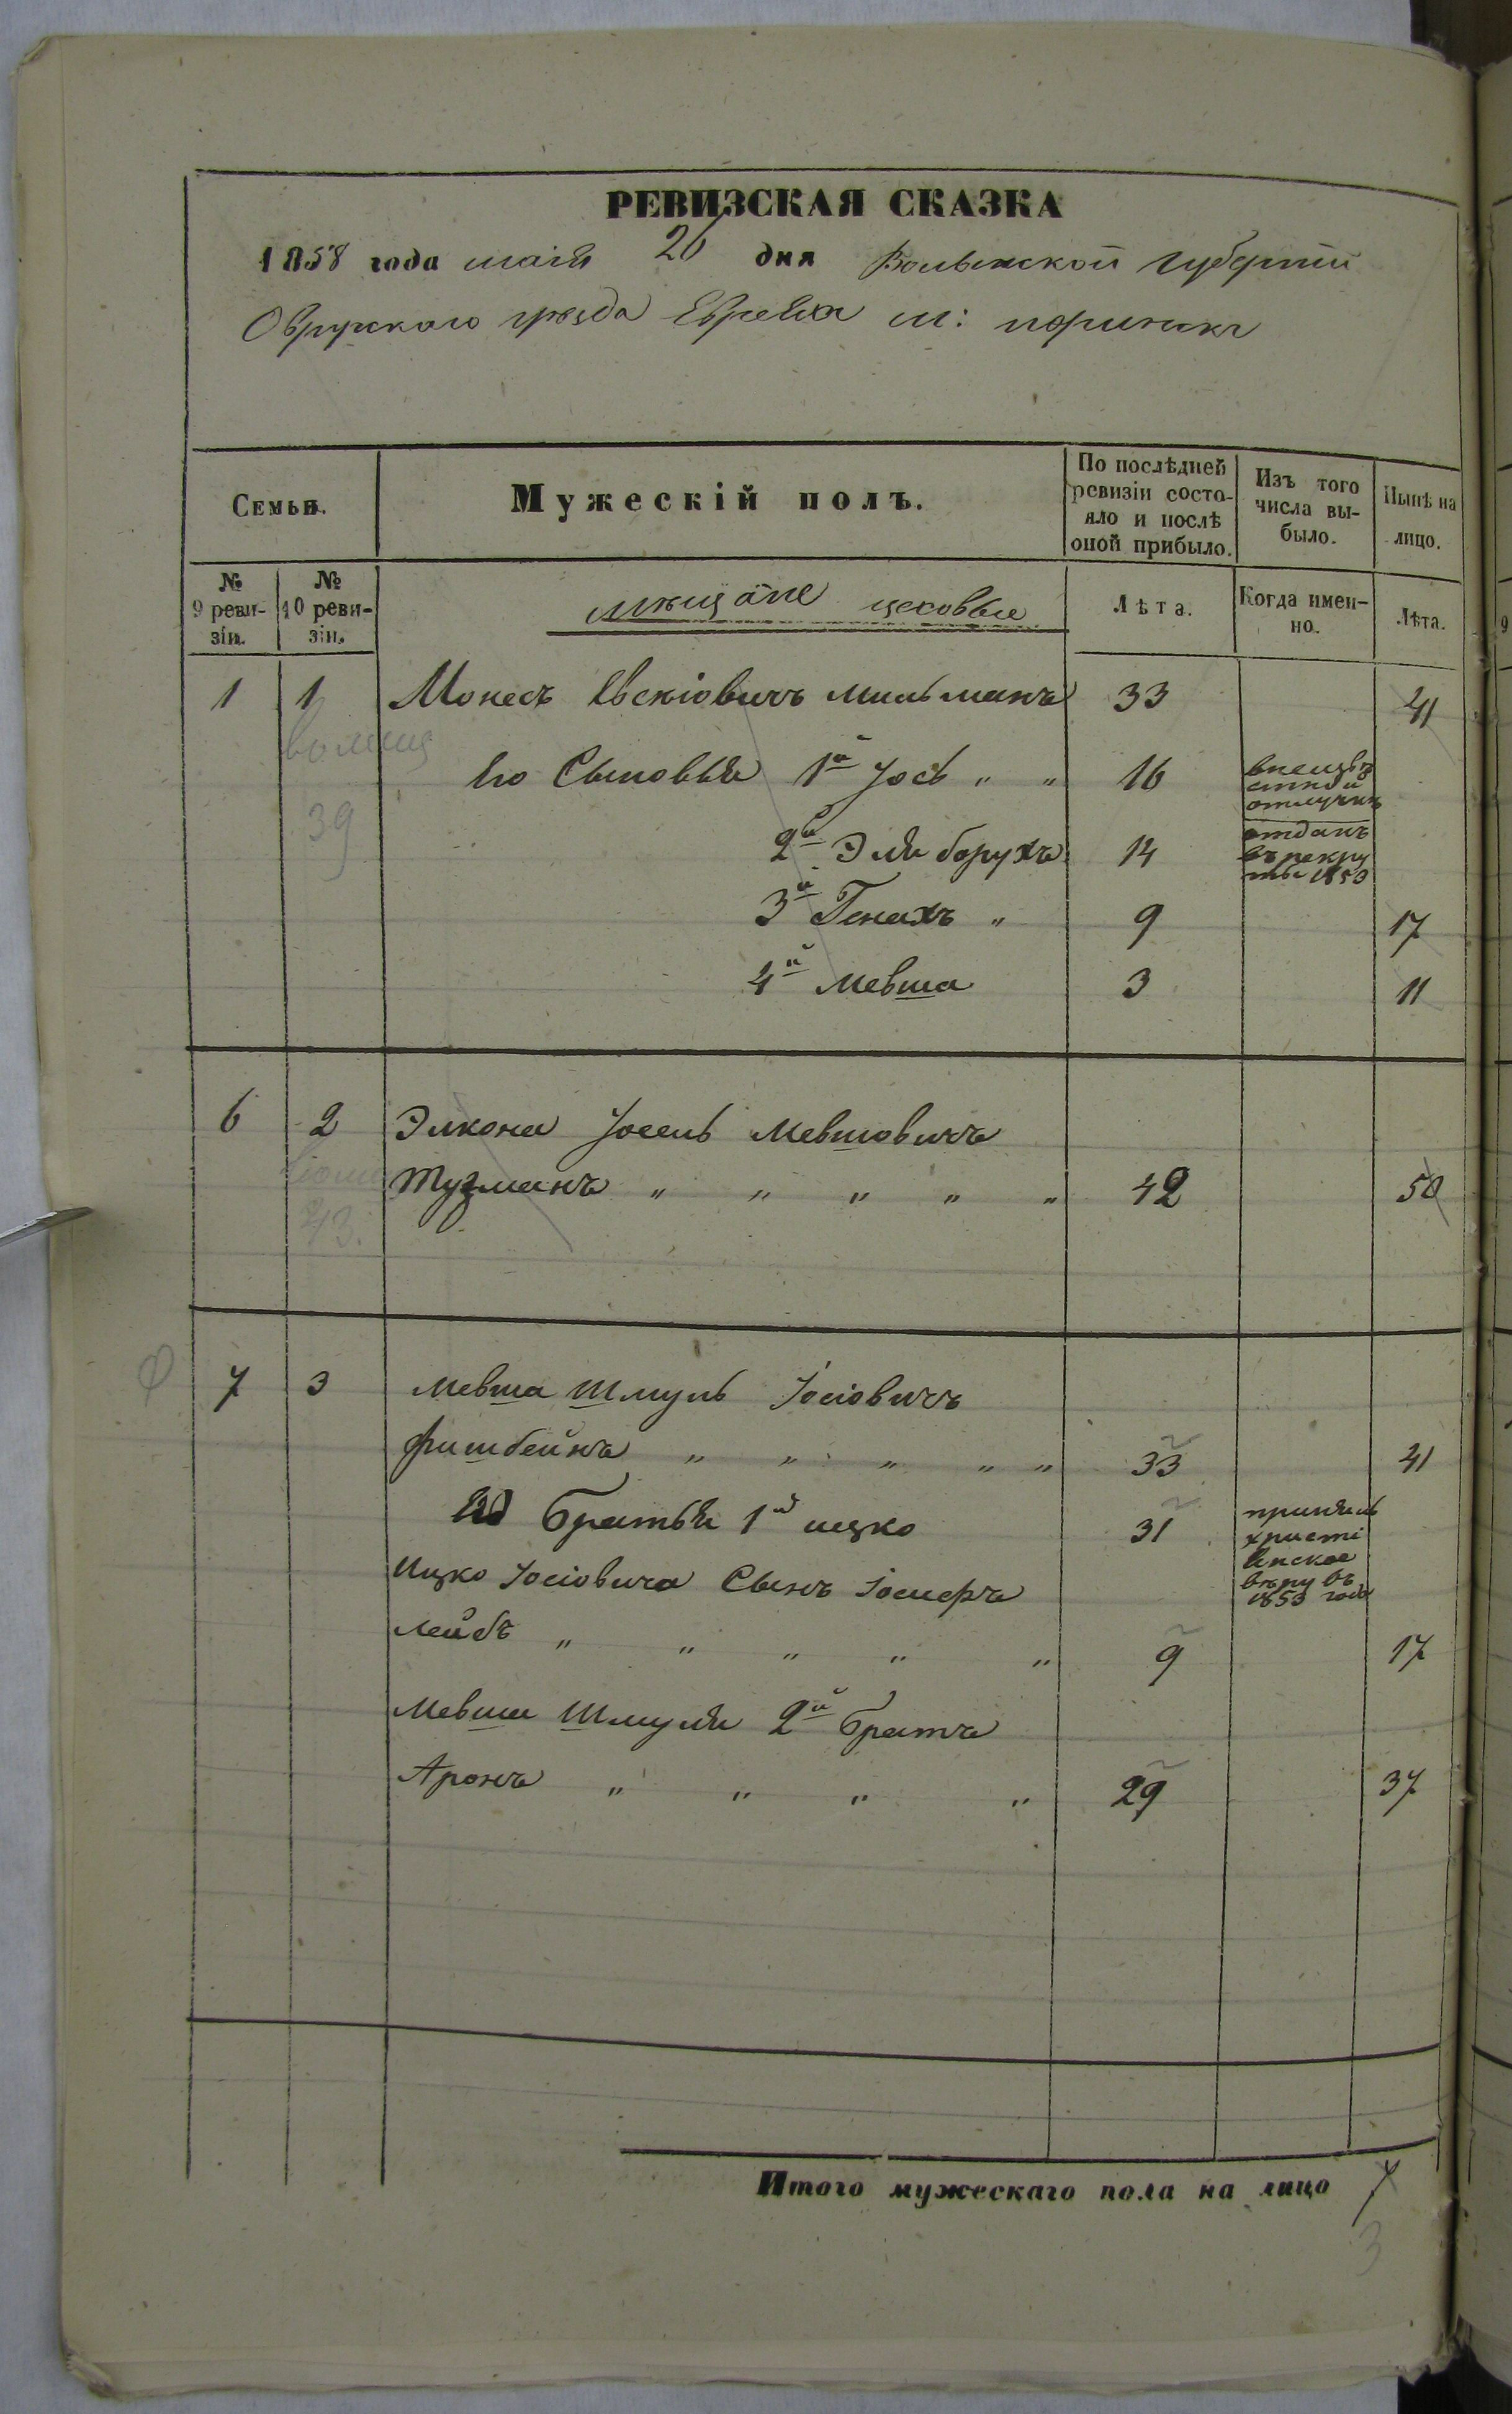 РЕВИЗСКАЯ СКАЗКА
1858 года маія 26 дня Волынской губерніи
Овручского уѣзда Евреевъ м:
Семьи.
Мужескій полъ.
По послѣдней ревизіи состо-
яло и послѣ
оной прибыло.
Изъ того
числа вы-
было.
Нынѣ на
лицо.
№
9 реви-
зіи.
№
10 реви-
зіи.
мѣщане цеховые
Лѣта.
Когда имен-
но.
Лѣта.
1 1 Монесъ мильманъ 33 41
Его Сыновья 1й Іось " " 16
в неизвѣ
стной
отлучкѣ
39
2й Эля борухъ 14
отданъ
въ рекру
ты 1853
3й Генахъ " 9 17
4й Мевша 3 11
6 2 Элкона Іосель Мевшовичъ
Тузманъ " " " " " 42 50
43.
7 3 Мевша Шмуль Іосіовичъ
фишбейнъ " " " " " 33 41
Его братья 1й ицко 31
принялъ
христі
янское
вѣру въ
1853 года
Ицко Іосіовича Сынъ
лейбъ " " " " " 9 17
Мевши Шмуля 2й братъ
Аронъ " " " " 29 37
Итого мужескаго пола на лицо 7
3